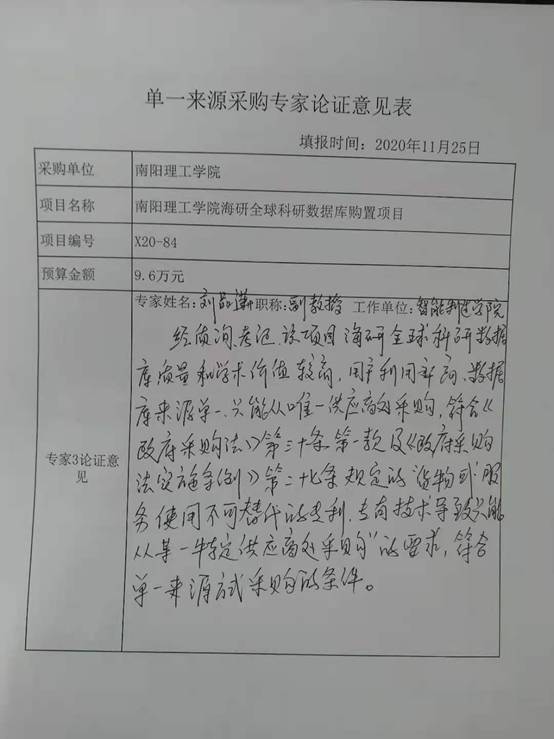 单一来源采购专家论证意见表
填报时间：2020年11月25日
采购单位 南阳理工学院
项目名称 南阳理工学院海研全球科研数据库购置项目
项目编号 X20-84
预算金额 9.6万元
专家3论证意见
专家姓名：刘 职称：副教授 工作单位：智能制造学院
经质询、考证，该项目海研全球科研数据
库质量和学术价值较高，用户利用率高，数据
库来源单一，只能从唯一供应商处采购，符合《
政府采购法》第三十条第一款及《政府采购
法实施条例》第二十七条规定的“货物或服
务使用不可替代的专利、专有技术导致只能
从某一特定供应商处采购”的要求，符合
单一来源方式采购的条件。